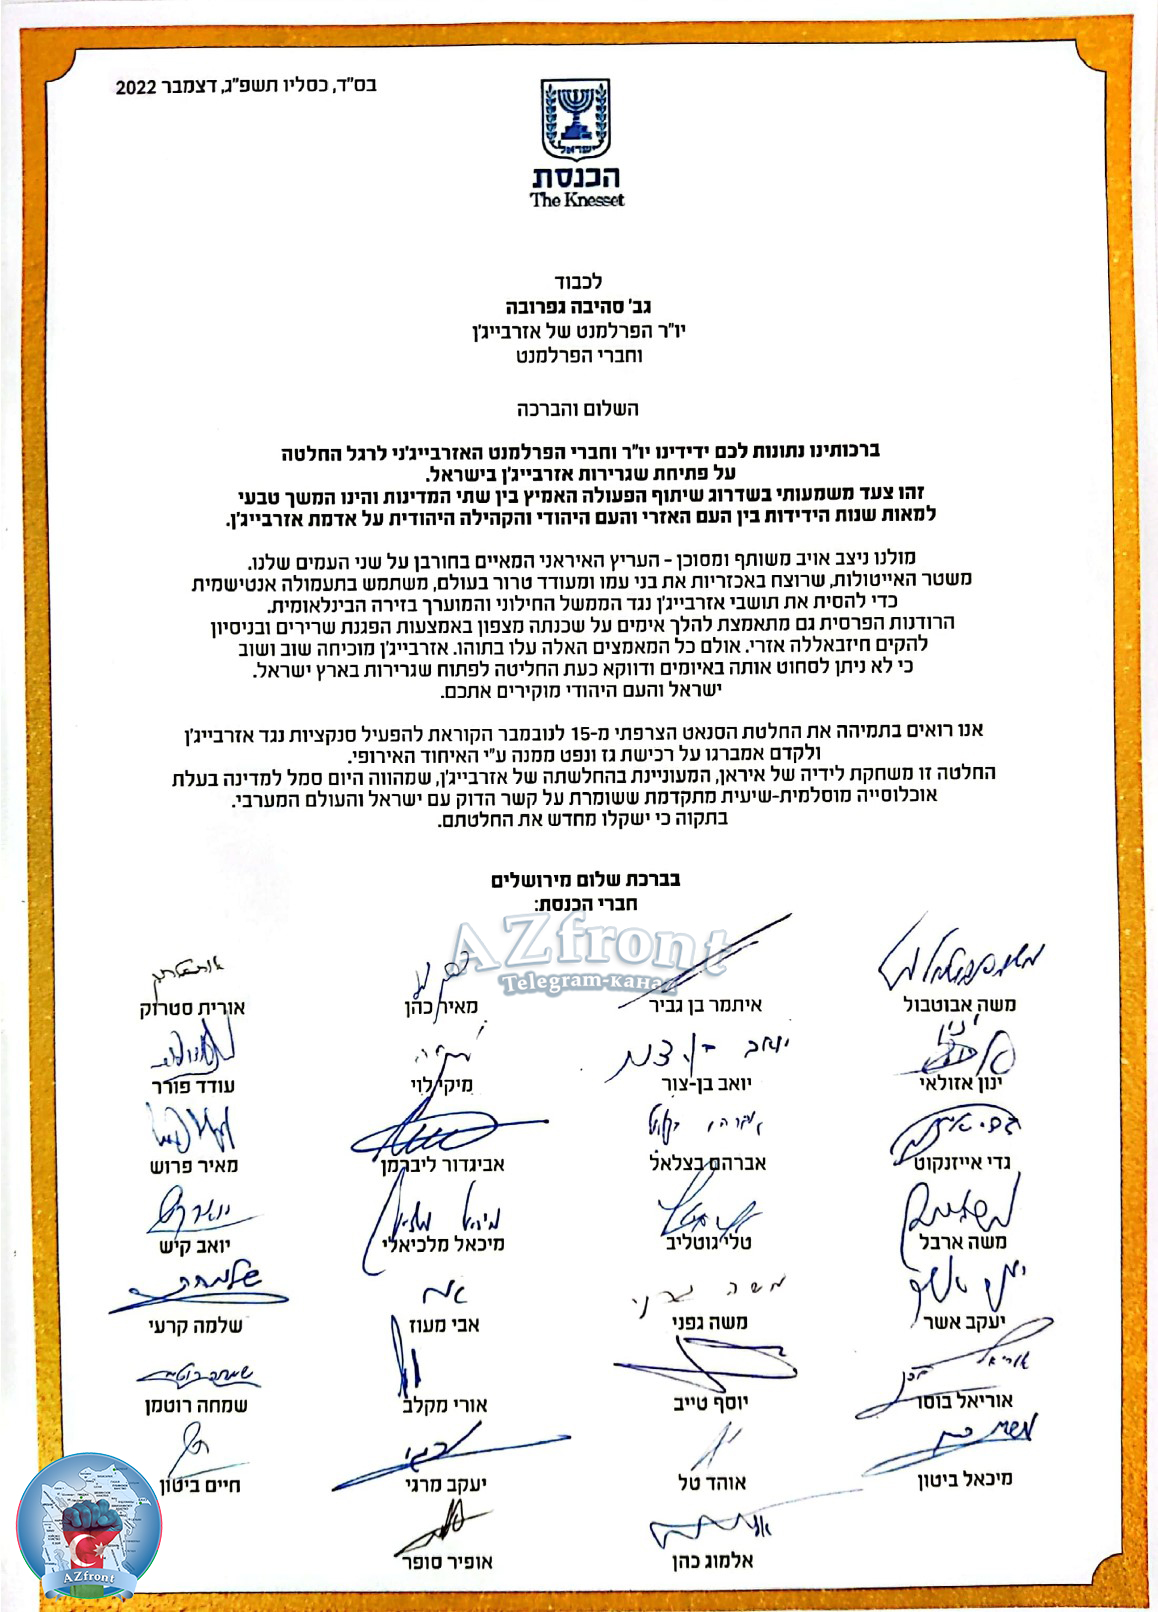 בס"ד, כסליו תשפ"ג, דצמבר 2022
ישראל
הכנסת
The Knesset
לכבוד
גב' סהיבה גפרובה
יו"ר הפרלמנט של אזרבייג'ן
וחברי הפרלמנט
השלום והברכה
ברכותינו נתונות לכם ידידינו יו"ר וחברי הפרלמנט האזרבייג'ני לרגל החלטה
על פתיחת שגרירות אזרבייג'ן בישראל.
זהו צעד משמעותי בשדרוג שיתוף הפעולה האמיץ בין שתי המדינות והינו המשך טבעי
למאות שנות הידידות בין העם האזרי והעם היהודי והקהילה היהודית על אדמת אזרבייג'ן.
מולנו ניצב אויב משותף ומסוכן - העריץ האיראני המאיים בחורבן על שני העמים שלנו.
משטר האייטולות, שרוצח באכזריות את בני עמו ומעודד טרור בעולם, משתמש בתעמולה אנטישמית
כדי להסית את תושבי אזרבייג'ן נגד הממשל החילוני והמוערך בזירה הבינלאומית.
הרודנות הפרסית גם מתאמצת להלך אימים על שכנתה מצפון באמצעות הפגנת שרירים ובניסיון
להקים חיזבאללה אזרי. אולם כל המאמצים האלה עלו בתוהו. אזרבייג'ן מוכיחה שוב ושוב
כי לא ניתן לסחוט אותה באיומים ודווקא כעת החליטה לפתוח שגרירות בארץ ישראל.
ישראל והעם היהודי מוקירים אתכם.
אנו רואים בתמיהה את החלטת הסנאט הצרפתי מ-15 לנובמבר הקוראת להפעיל סנקציות נגד אזרבייג'ן
ולקדם אמברגו על רכישת גז ונפט ממנה ע"י האיחוד האירופי.
החלטה זו משחקת לידיה של איראן, המעוניינת בהחלשתה של אזרבייג'ן, שמהווה היום סמל למדינה בעלת
אוכלוסייה מוסלמית-שיעית מתקדמת ששומרת על קשר הדוק עם ישראל והעולם המערבי.
בתקוה כי ישקלו מחדש את החלטתם.
בברכת שלום מירושלים
חברי הכנסת:
AZfront
Telegram-канал
משה אבוטבול איתמר בן גביר מאיר כהן אורית סטרוק
ינון אזולאי יואב בן-צור מיקי לוי עודד פורר
גדי אייזנקוט אברהם בצלאל אביגדור ליברמן מאיר פרוש
משה ארבל טלי גוטליב מיכאל מלכיאלי יואב קיש
יעקב אשר משה גפני אבי מעוז שלמה קרעי
אוריאל בוסו יוסף טייב אורי מקלב שמחה רוטמן
מיכאל ביטון אוהד טל יעקב מרגי חיים ביטון
אלמוג כהן אופיר סופר
AZfront